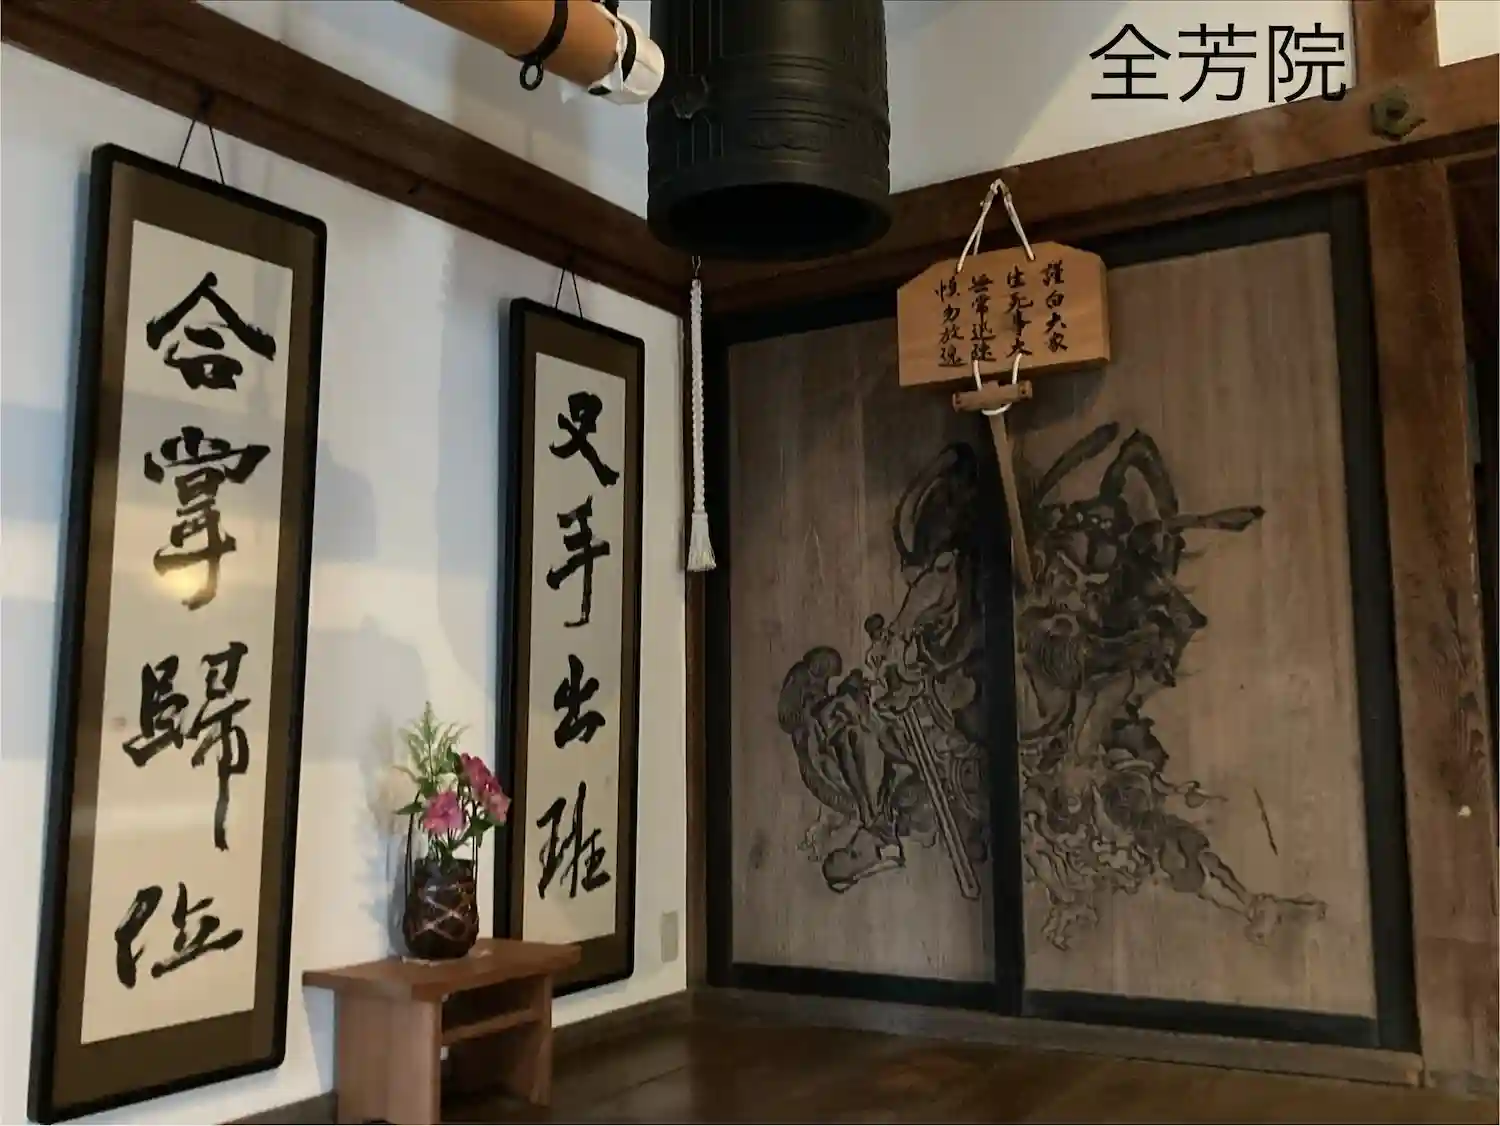 全芳院
合掌歸位
叉手出班
謹白大家
生死事大
無常迅速
慎勿放逸